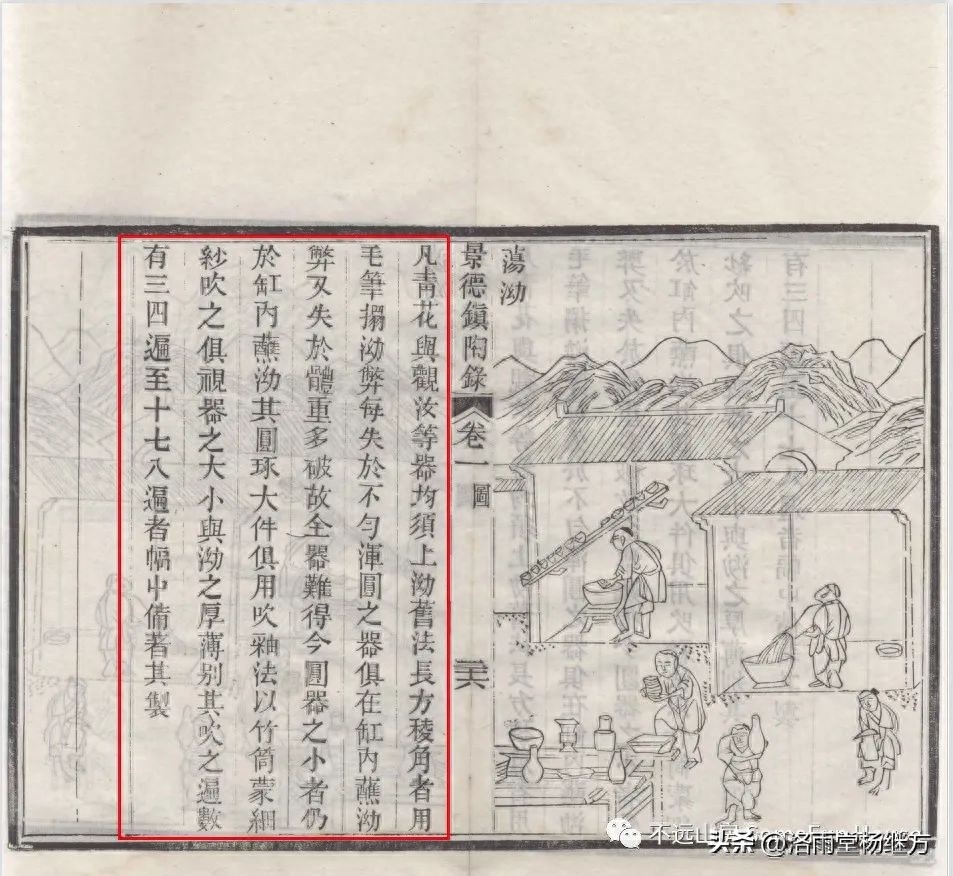 蕩泑
景德鎮陶錄 卷一 圖 二六
凡青花與觀汝等器均須上泑舊法長方稜角者用
毛筆搨泑弊每失於不勻渾圓之器俱在缸內蘸泑
弊又失於體重多破故全器難得今圓器之小者仍
於缸內蘸泑其圓琢大件俱用吹釉法以竹筒蒙細
紗吹之俱視器之大小與泑之厚薄别其吹之遍數
有三四遍至十七八遍者幅中備著其製
头条 @洛雨堂杨继方